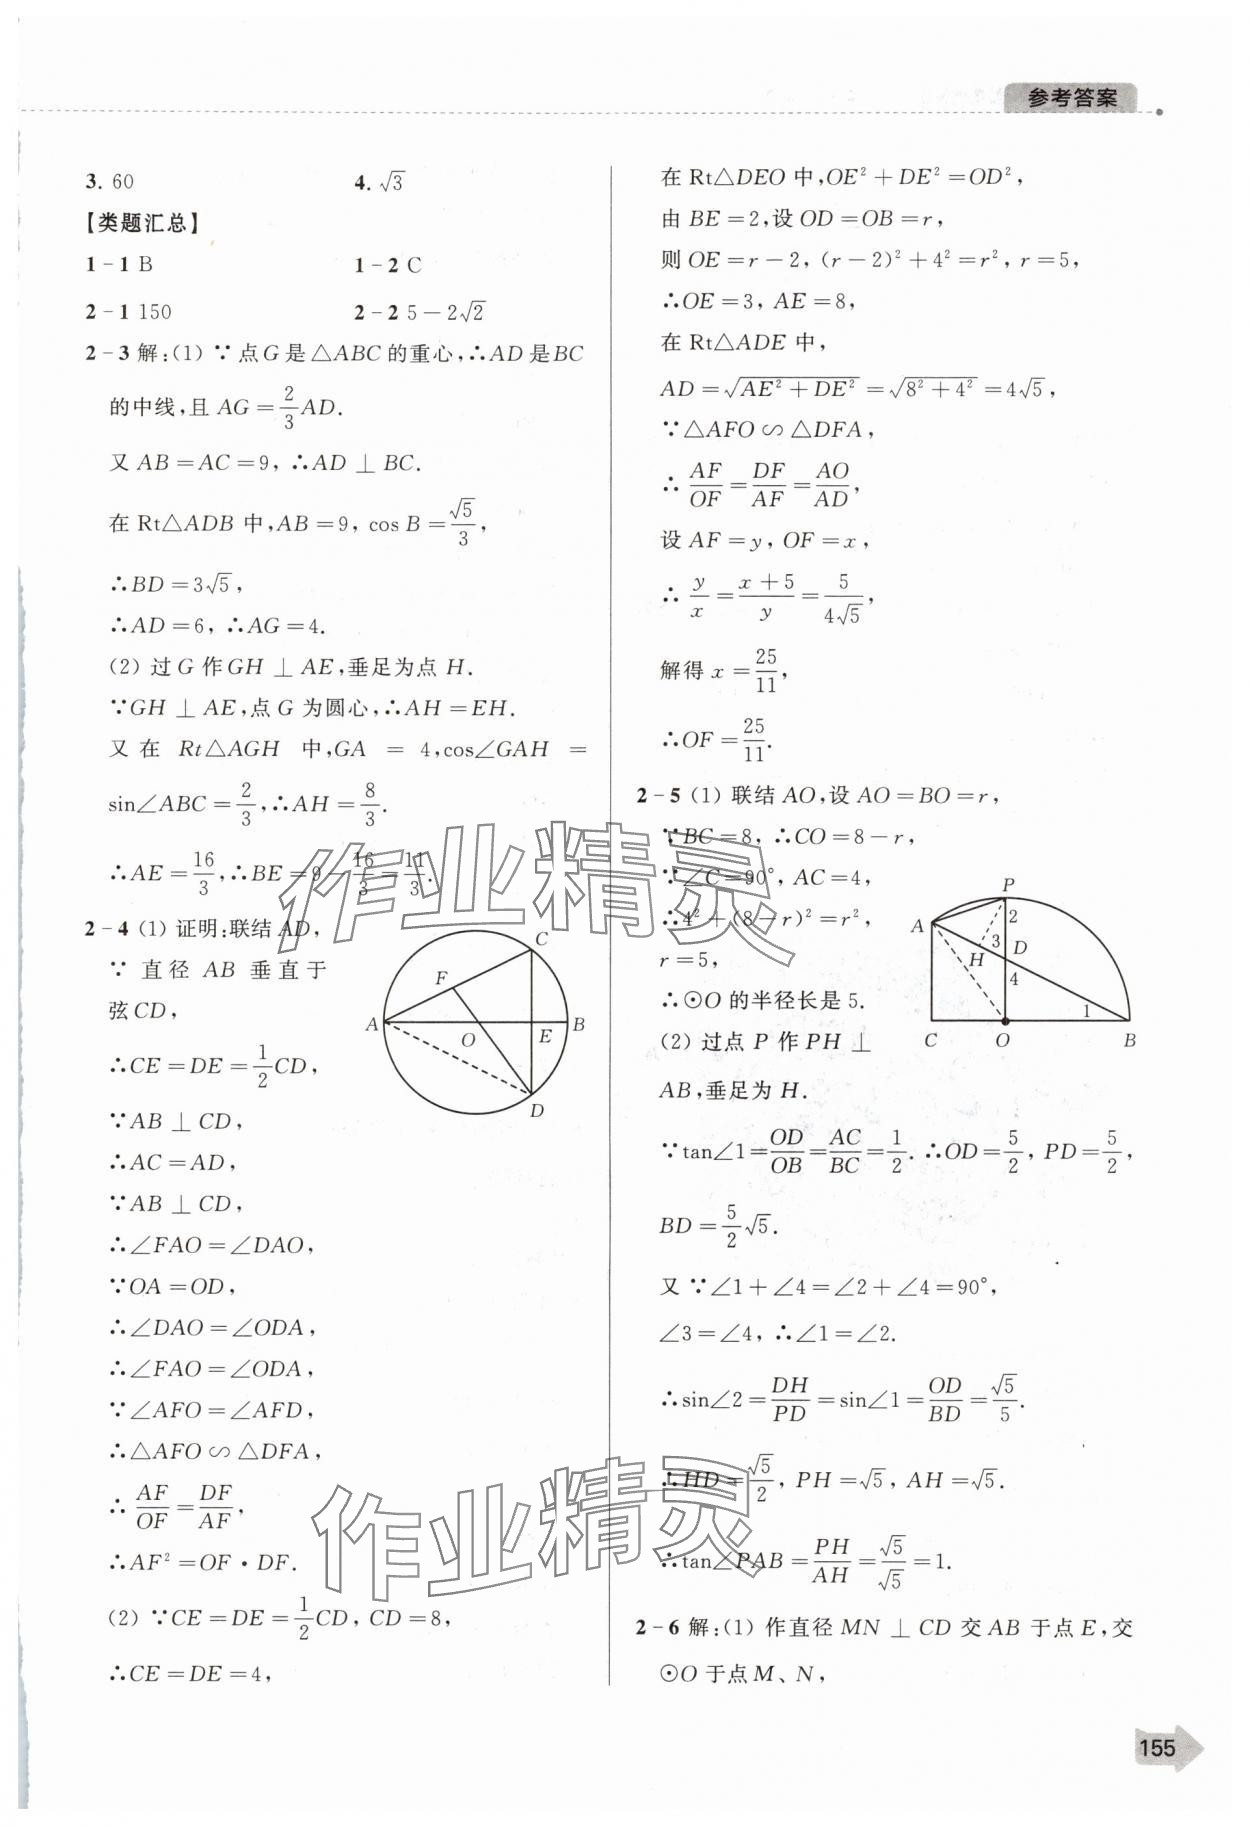 参考答案
3. 60    4. √3
【类题汇总】
1-1 B    1-2 C
2-1 150    2-2 5-2√2
2-3 解:(1) ∵点G是△ABC的重心,∴AD是BC
的中线,且 AG=2/3 AD.
又 AB=AC=9, ∴AD⊥BC.
在 Rt△ADB 中,AB=9, cos B=√5/3,
∴BD=3√5,
∴AD=6, ∴AG=4.
(2) 过G作GH⊥AE,垂足为点 H.
∵GH⊥AE,点 G 为圆心,∴AH=EH.
又在 Rt△AGH 中,GA=4,cos∠GAH=
sin∠ABC=2/3,∴AH=8/3.
∴AE=16/3,∴BE=9-16/3=11/3.
2-4 (1) 证明:联结AD,
∵ 直径 AB 垂直于
弦CD,
∴CE=DE=1/2 CD,
∵AB⊥CD,
∴AC=AD,
∵AB⊥CD,
∴∠FAO=∠DAO,
∵OA=OD,
∴∠DAO=∠ODA,
∴∠FAO=∠ODA,
∵∠AFO=∠AFD,
∴△AFO∽△DFA,
∴AF/OF=DF/AF,
∴AF²=OF·DF.
(2) ∵CE=DE=1/2 CD, CD=8,
∴CE=DE=4,
C
F
A
O
E
B
D
在 Rt△DEO 中,OE²+DE²=OD²,
由 BE=2,设 OD=OB=r,
则 OE=r-2, (r-2)²+4²=r², r=5,
∴OE=3, AE=8,
在 Rt△ADE 中,
AD=√(AE²+DE²)=√(8²+4²)=4√5,
∵△AFO∽△DFA,
∴AF/OF=DF/AF=AO/AD,
设 AF=y, OF=x,
∴y/x=(x+5)/y=5/(4√5),
解得 x=25/11,
∴OF=25/11.
2-5 (1) 联结 AO,设 AO=BO=r,
∵BC=8, ∴CO=8-r,
∵∠C=90°, AC=4,
∴4²+(8-r)²=r²,
r=5,
∴⊙O 的半径长是 5.
(2) 过点 P 作 PH⊥
AB,垂足为 H.
P
A
2
3
D
H
4
1
C
O
B
∵tan∠1=OD/OB=AC/BC=1/2. ∴OD=5/2, PD=5/2,
BD=5/2 √5.
又 ∵∠1+∠4=∠2+∠4=90°,
∠3=∠4, ∴∠1=∠2.
∴sin∠2=DH/PD=sin∠1=OD/BD=√5/5.
∴HD=√5/2, PH=√5, AH=√5.
∴tan∠PAB=PH/AH=√5/√5=1.
2-6 解:(1) 作直径 MN⊥CD 交 AB 于点 E,交
⊙O 于点 M、N,
155
作业精灵
作业精灵